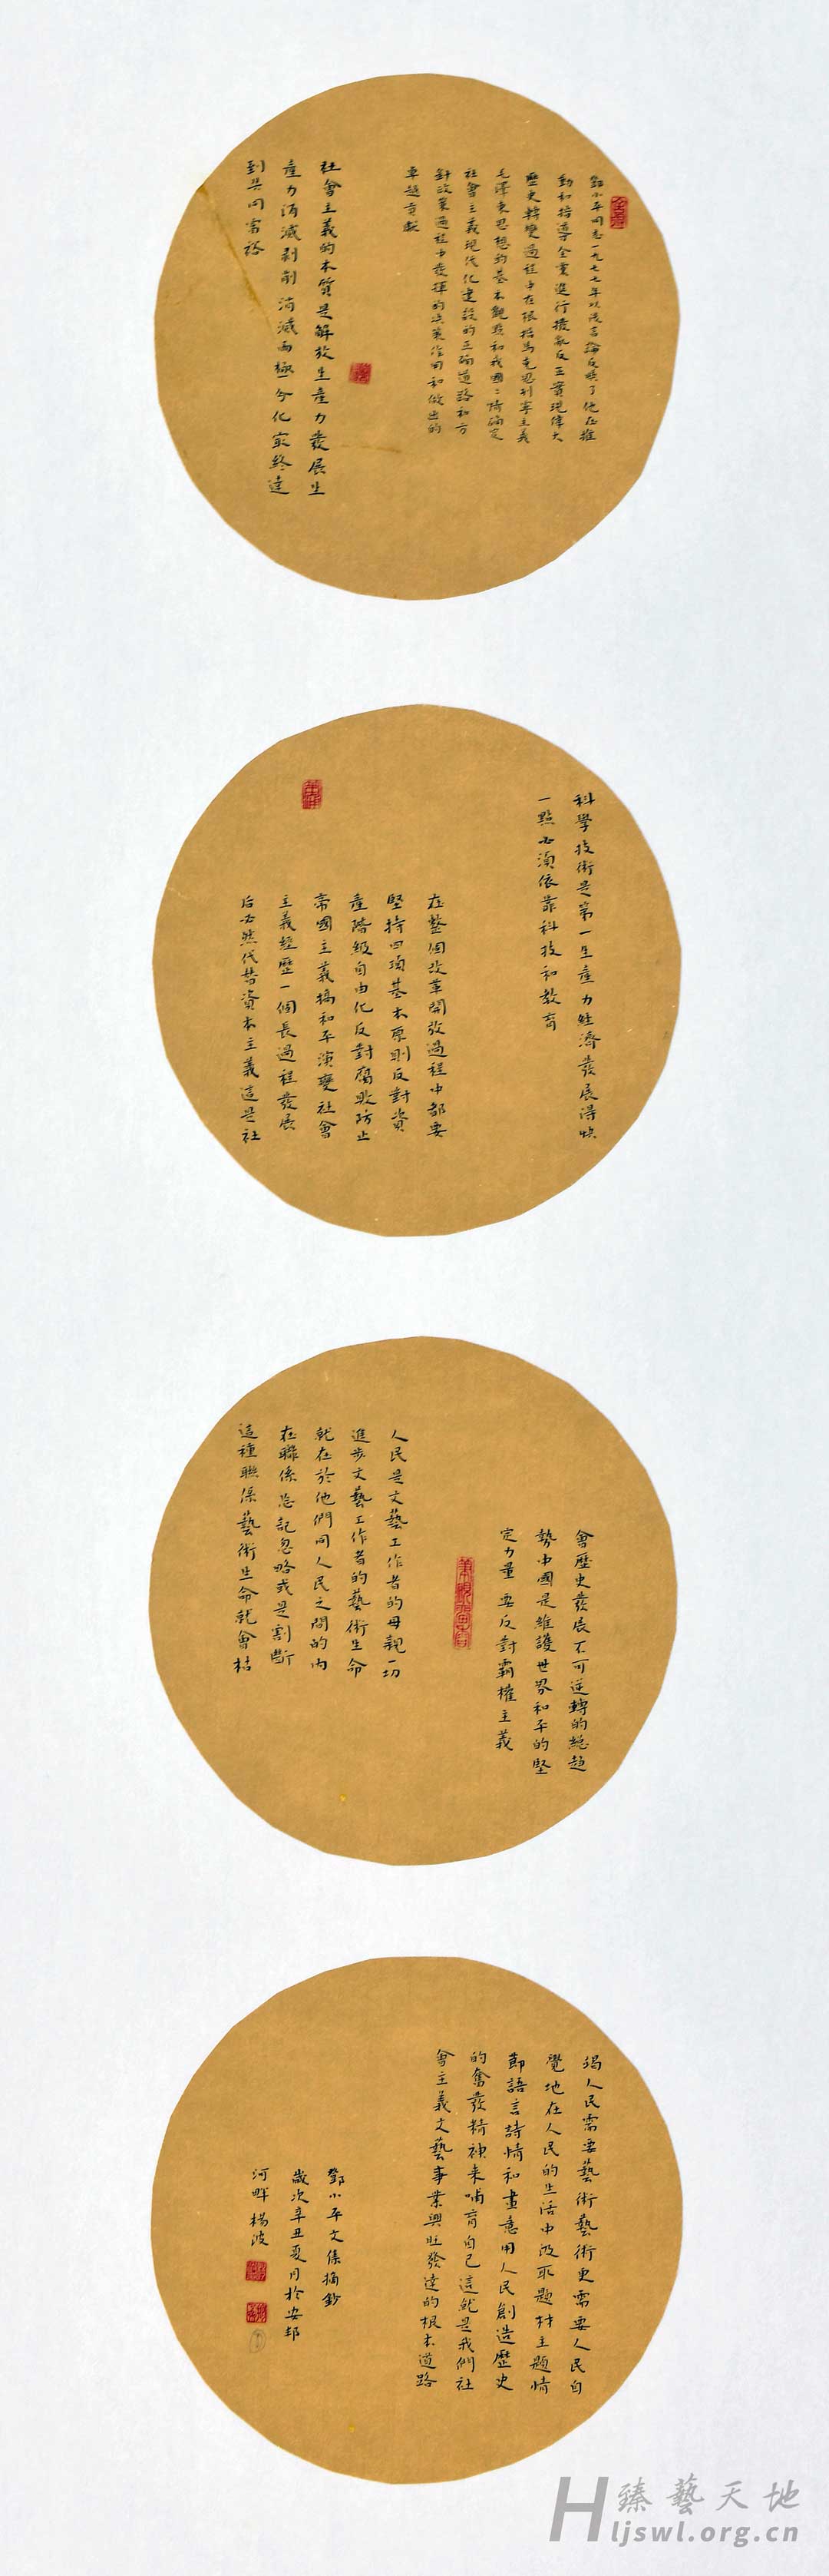 鄧小平同志一九七七年以後言論反映了他在推
動和指導全黨進行撥亂反正實現偉大
歷史轉變過程中在根據馬克思列寧主義
毛澤東思想的基本觀點和我國實際確定
社會主義現代化建設的正確道路和方
針政策過程中發揮的決策作用和做出的
卓越貢獻
社會主義的本質是解放生產力發展生
產力消滅剥削消滅兩極分化最終達
到共同富裕
科學技術是第一生產力經濟發展得快
一點必須依靠科技和教育
在整個改革開放過程中都要
堅持四項基本原則反對資
產階級自由化反對腐敗防止
帝國主義搞和平演變社會
主義經歷一個長過程發展
后必然代替資本主義這是社
會歷史發展不可逆轉的總趨
勢中國是維護世界和平的堅
定力量要反對霸權主義
人民是文藝工作者的母親一切
進步文藝工作者的藝術生命
就在於他們同人民之間的内
在聯係忘記忽略或是割斷
這種聯係藝術生命就會枯
竭人民需要藝術藝術更需要人民自
覺地在人民的生活中汲取題材主題情
節語言詩情和畫意用人民創造歷史
的奮發精神來哺育自己這就是我們社
會主義文藝事業興旺發達的根本道路
鄧小平文集摘鈔
歲次辛丑夏月於安邦
河畔楊波
臻藝天地
Hljswl.org.cn